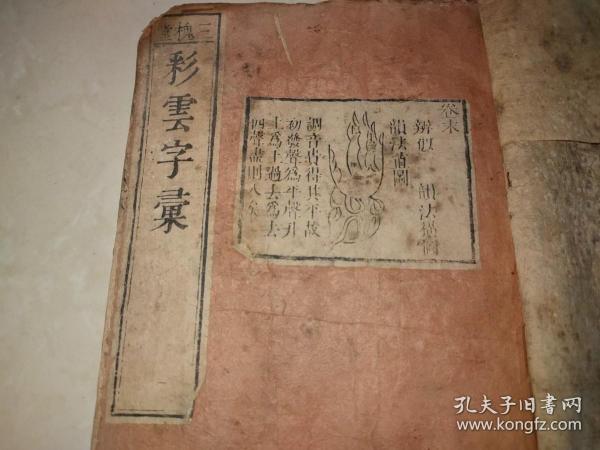 三槐堂
彩雲字彙
卷末
辨似 韻法橫圖
韻法直圖
調音貴得其平故
初發聲為平聲升
上為上過去為去
四聲盡則入矣
孔夫子旧书网
www.kongfz.com